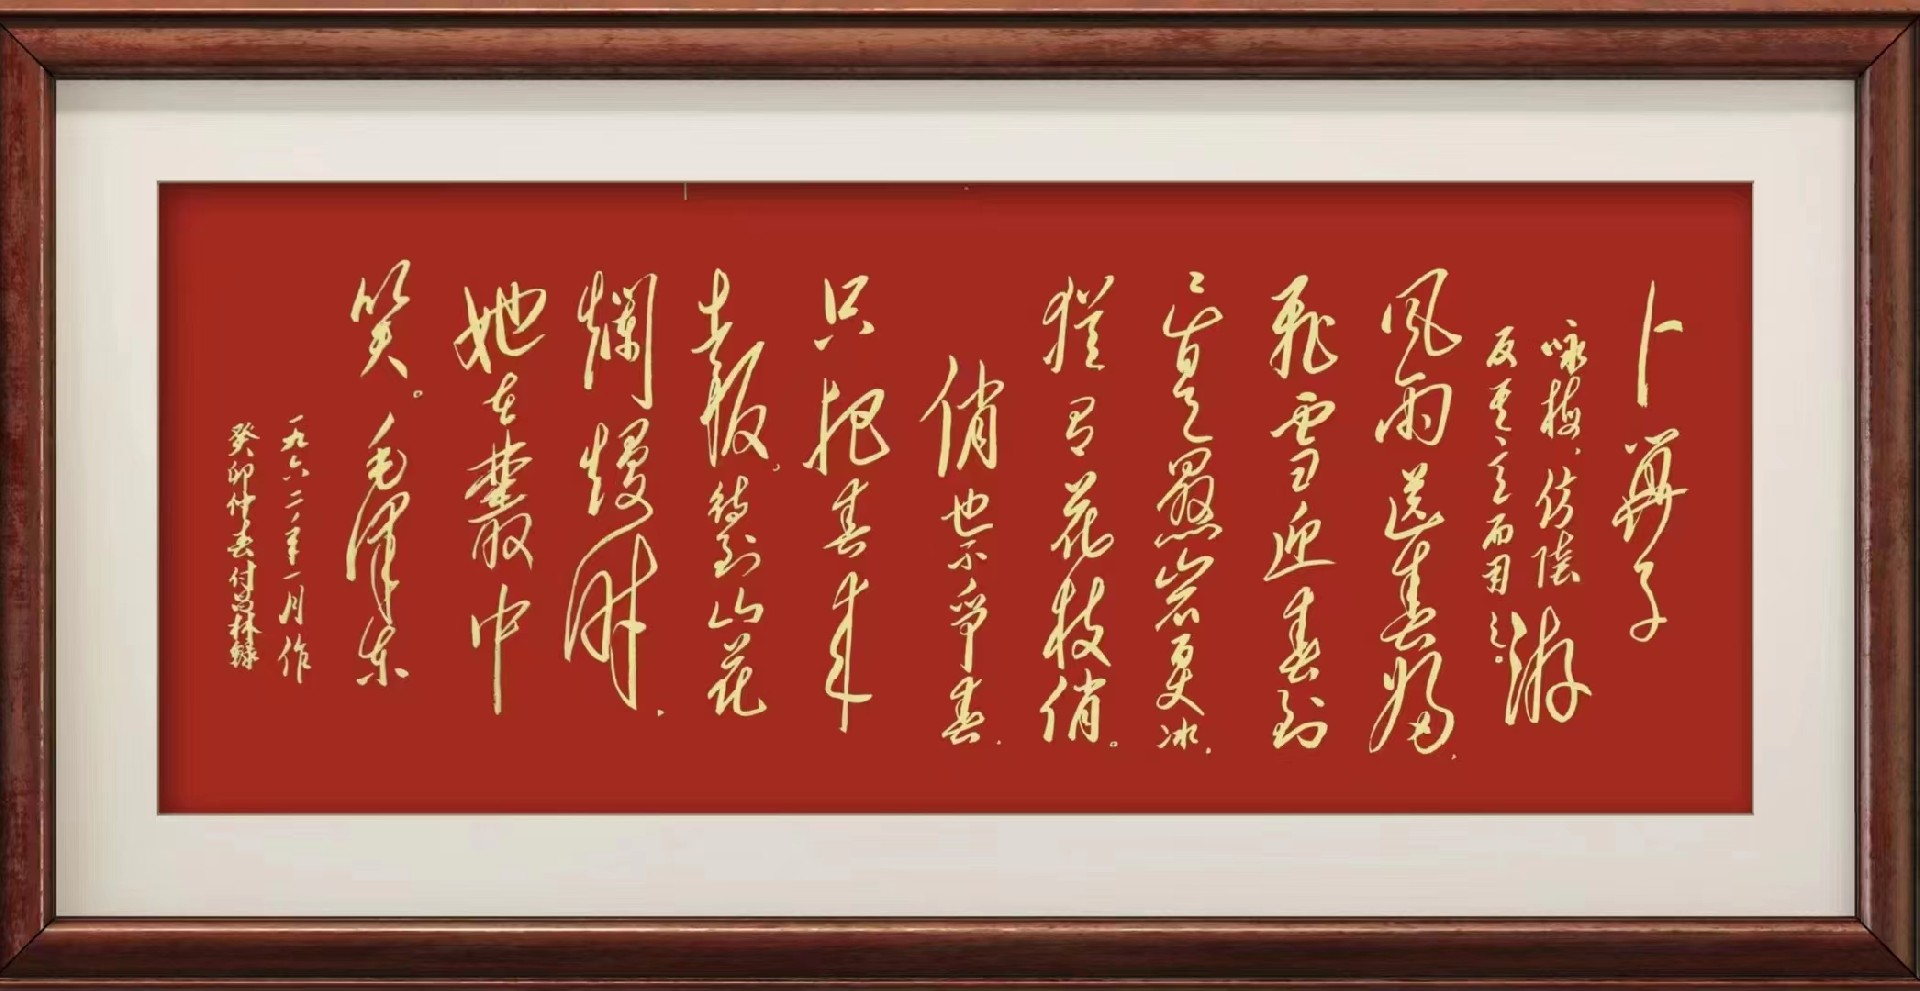 卜算子
咏梅,仿陆游
反其意而用之。
风雨送春归,
飞雪迎春到
已是悬岩百丈冰,
犹有花枝俏。
俏也不争春,
只把春来
報,待到山花
爛熳时,
她在叢中
笑。毛泽东
一九六二年一月作
癸卯仲春付昌林録